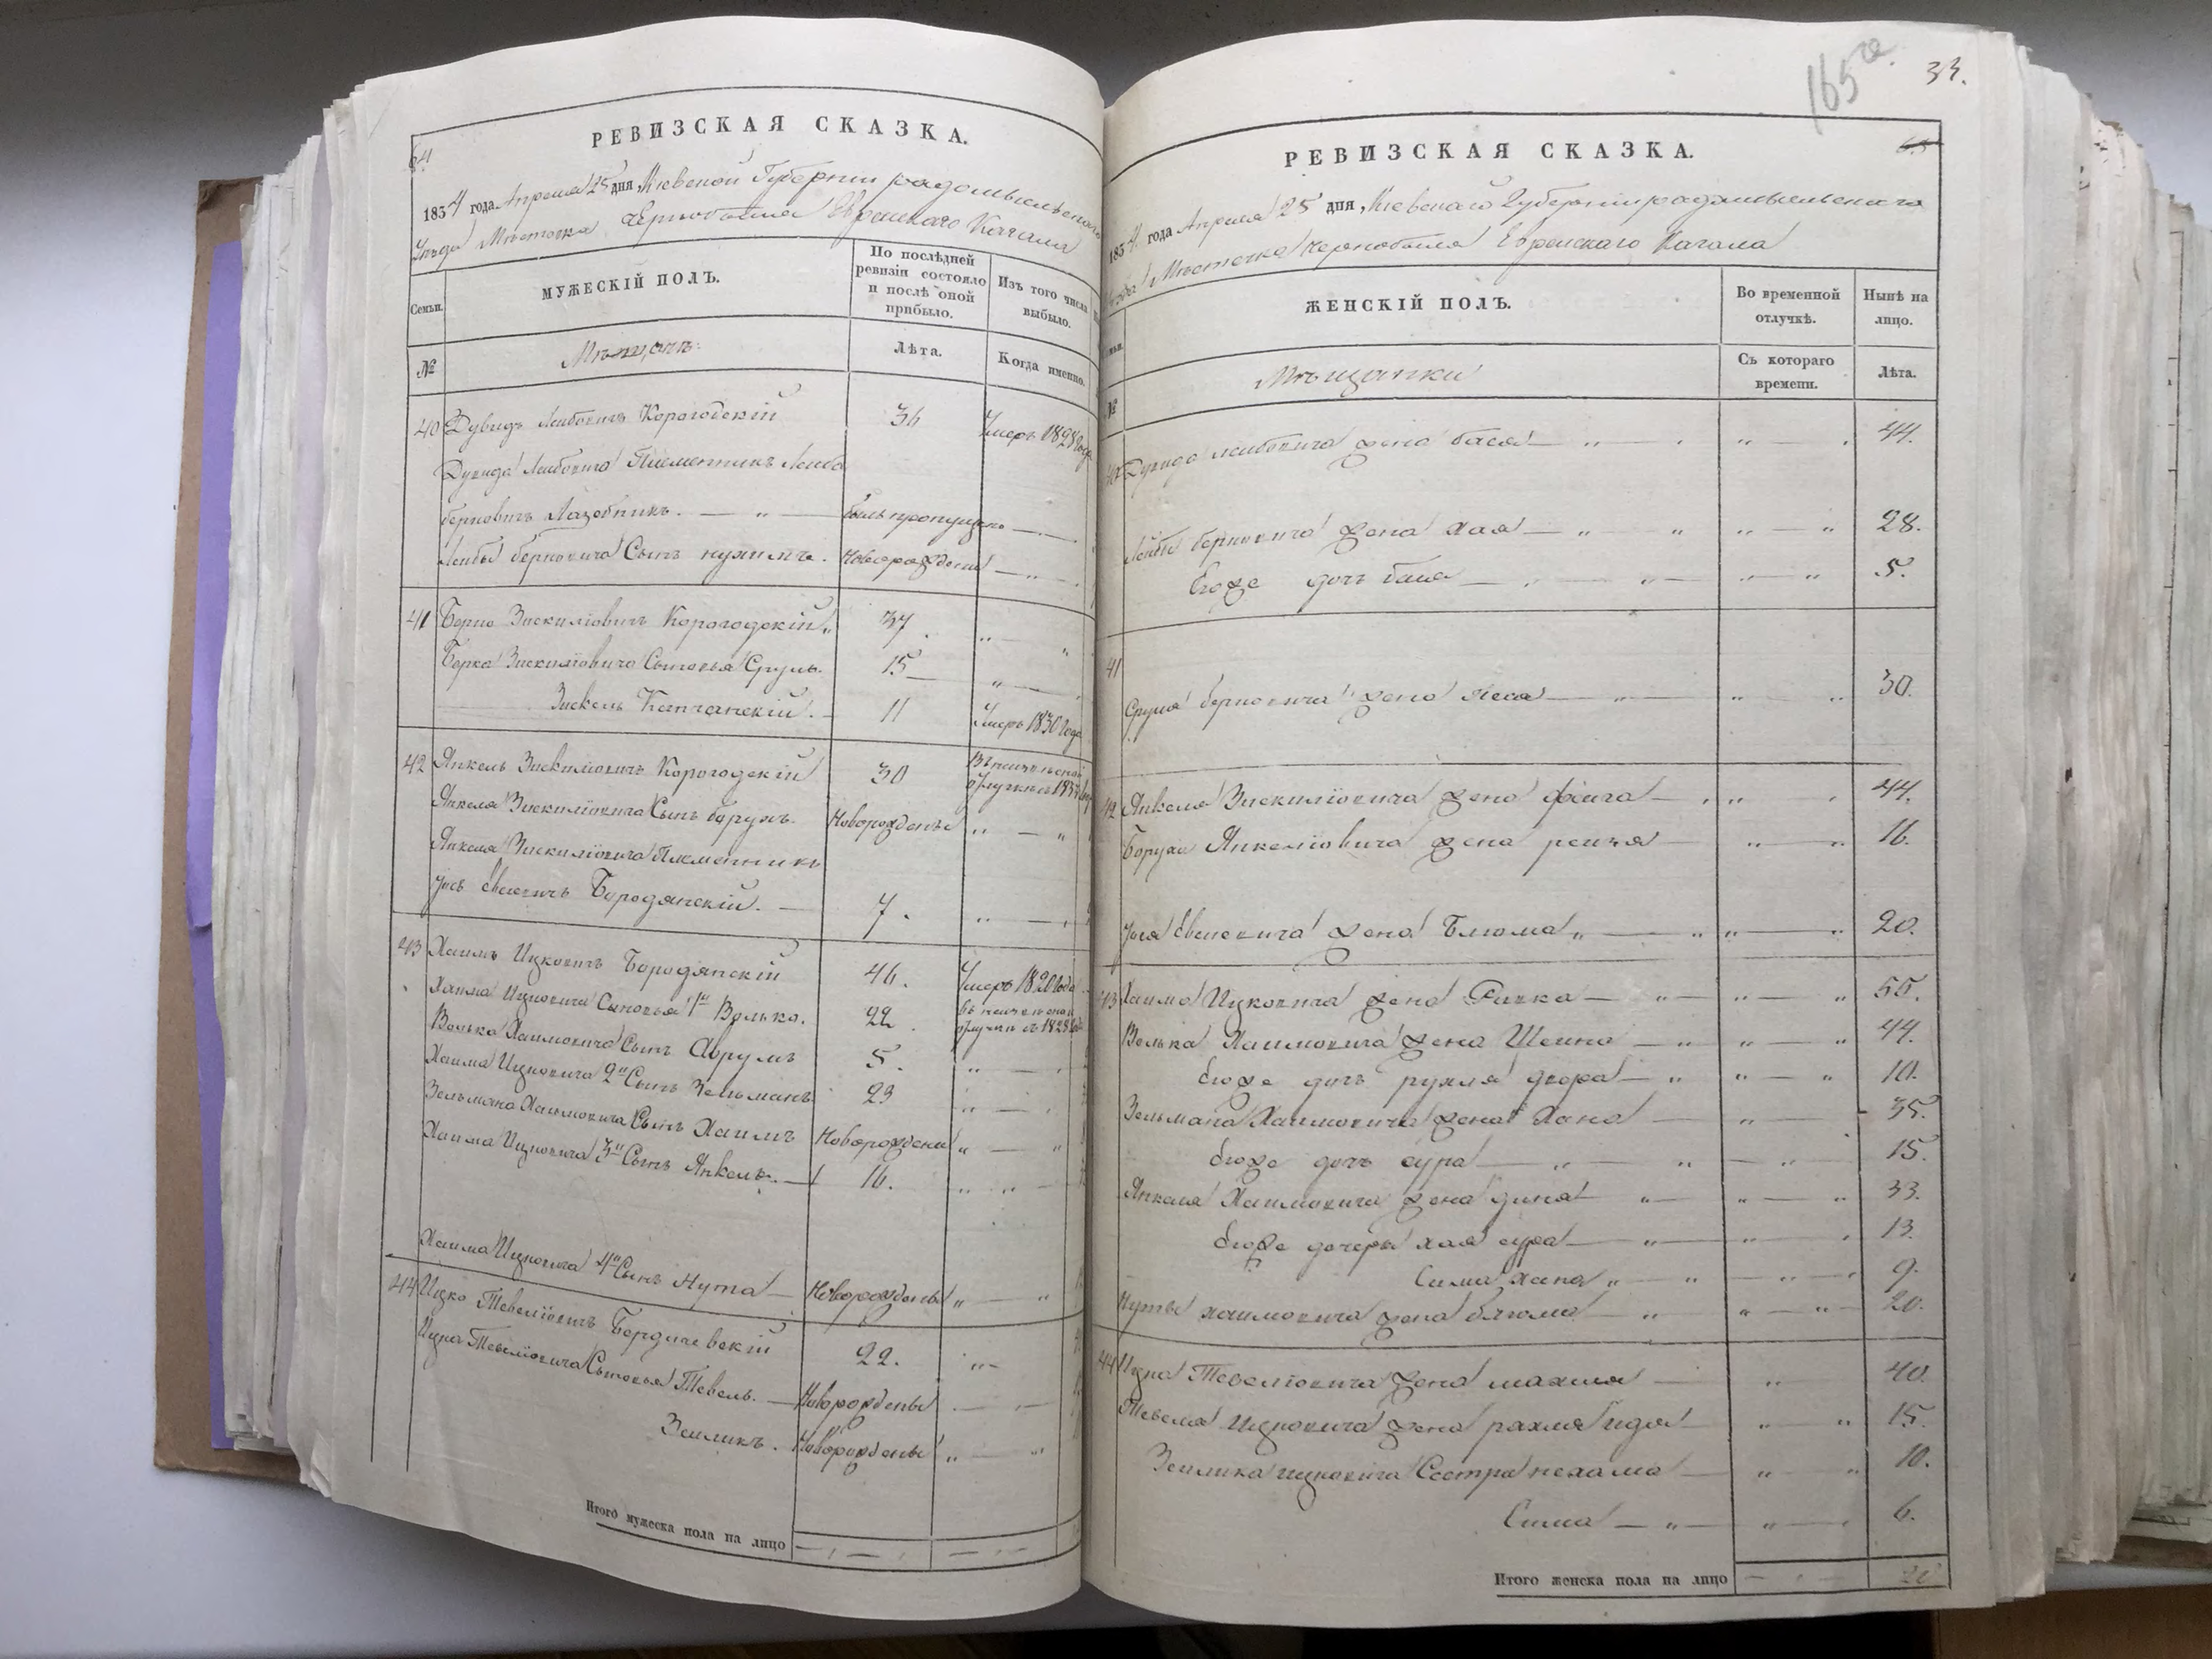 64
РЕВИЗСКАЯ СКАЗКА.
1834 года Апреля 25 дня, Киевской Губернии радомысльскаго
Уезда Местечка Чернобыля Еврейскаго Кагала
Семьи.
МУЖЕСКІЙ ПОЛЪ.
По послѣдней ревизіи состояло и послѣ оной прибыло.
Изъ того числа выбыло.
№
Мѣщанъ.
Лѣта.
Когда именно.
40 Дувидъ Лейбовичъ Корогодскій 36 Умеръ 1828 года
Дувида Лейбовича Племенникъ Лейба
берковичъ Лазебникъ. — „ — былъ пропущенъ —
Лейбы берковича Сынъ нухимъ. Новорожденный — „ —
41 Берко Зискиліовичъ Корогодскій „ 37. „
Берка Зискиліовича Сыновья Сруль. 15 — „ —
Зискель Капчанскій. — 11 Умеръ 1830 года
42 Янкель Зискиліовичъ Корогодскій 30
Янкеля Зискиліовича Сынъ борухъ. Новорожденъ „ — „
Янкеля Зискиліовича Племенникъ
Іось Бородянскій. — 7. „ —
43 Хаимъ Ицковичъ Бородянскій 46. Умеръ 1820 года
Хаима Ицковича Сыновья 1й Волько. 22.
Волька Хаимовича Сынъ Абрумъ 5. „ —
Хаима Ицковича 2й Сынъ Зельманъ 23 „ —
Зельмана Хаимовича Сынъ Хаимъ Новорожденны „ — „
Хаима Ицковича 3й Сынъ Янкель. — 16. „ „ —
Хаима Ицковича 4й Сынъ Нута — Новорожденны „ — „
44 Ицко Тевеліовичъ Бердичевскій 22. „ —
Ицка Тевеліовича Сыновья Тевель. — Новорожденны
Зеиликъ. Новорожденны „ — „
Итого мужеска пола на лицо
165 а.
33.
65
РЕВИЗСКАЯ СКАЗКА.
1834 года Апреля 25 дня, Киевскаго Губерніи радомысльскаго
Местечка Чернобыля Еврейскаго Кагала
ЖЕНСКІЙ ПОЛЪ.
Во временной отлучкѣ.
Нынѣ на лицо.
№
Мѣщанки
Съ котораго времени.
Лѣта.
40 Дувида лейбовича жена бася — „ — „ 44.
Лейбы берковича жена хая — „ — „ „ — „ 28.
Егоже дочь — „ — „ — „ — „ 5.
41
Сруля берковича жена — „ — „ — „ 30.
42 Янкеля Зискиліовича жена феига — „ „ 44.
Боруха Янкеліовича жена — „ — „ 16.
Іося жена Блюма „ — „ „ — „ 20.
43 Хаима Ицковича жена Ривка — „ — „ — „ 55.
Волька Хаимовича жена Шеина — „ „ — „ 44.
Егоже дочь рухля двора — „ „ — „ 10.
Зельмана Хаимовича жена Хана — „ — 35.
Егоже дочь сура — „ — „ — „ — 15.
Янкеля Хаимовича жена дина — „ — „ — „ 33.
Егоже дочери хая сура — „ — „ — 13.
Сима хана „ — „ — „ — 9.
Нуты хаимовича жена блюма — „ — „ — „ — 20.
44 Ицка Тевеліовича жена малка — „ 40.
Тевеля Ицковича жена рахля гидя — „ „ 15.
Зеилика ицковича Сестра нехама — „ „ 10.
Сима — „ — „ — 6.
Итого женска пола на лицо